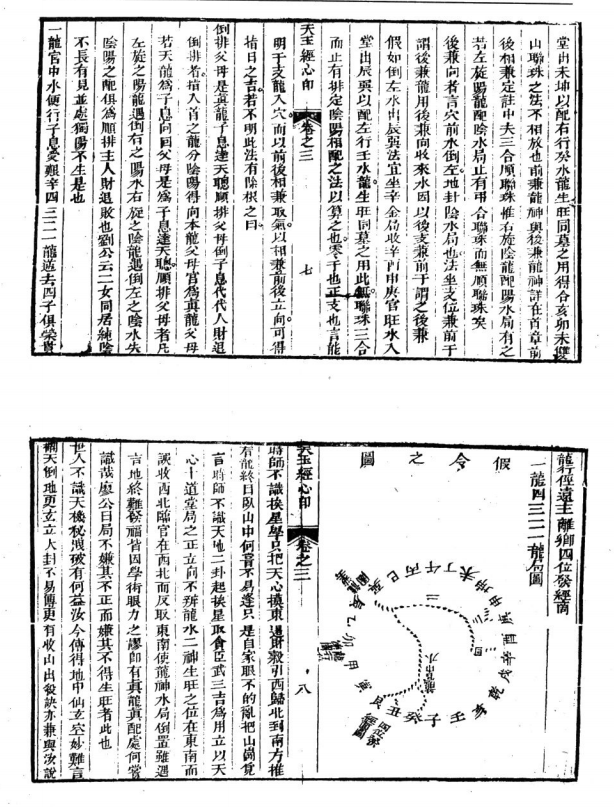 堂出未坤以配右行癸水龍生旺同墓之用得合亥卯未雙
山聯珠之法不相放也前兼龍神與後兼龍神詳在首章前
後相兼定註中夫三合順聯珠惟右旋陰龍配陽水局有之
若左旋陽龍配陰水局止有弔合聯珠而無順聯珠矣
後兼向者言穴前水倒左地卦陰水局也法坐支位兼前于
謂後兼龍用後兼向收來水因以後支兼前于謂之後兼
假如倒左水出辰巽法宜坐辛金局收辛酉申庚官旺水入
堂出辰巽以配左行壬水龍生旺同墓之用此無聯珠三合
而止有排定陰陽相配之法以算之也零于也正支也言能
天玉經心印
卷之三
七
明干支龍入穴而以前後相兼取氣以相兼前後立向可得
指日之吉若不明此法有除根之曰
倒排父母是真龍子息達天聰順排父母倒子息代代人財退
倒排者指入首之龍分陰陽得向本龍父母官爲真龍父母
若天龍爲子息向回父母是爲子息達天聰順排父母者凡
左旋之陽龍遇倒右之陽水右旋之陰龍遇倒左之陰水失
陰陽之配俱爲順排主人財退敗也劉公云二女同居純陰
不長有見並處獨陽不生是也
一龍官中水便行子息受艱辛四三二一龍逆去四子俱榮貴
龍行徑遠主離鄉四位發經商
一龍四三二一龍局圖
假令之圖
丙午丁未坤申庚酉辛戌乾亥壬子癸丑艮寅甲卯乙辰巽巳
天玉經心印
卷之三
八
時師不識挨星學只把天心摸東邊財穀引西歸北到南方推
老龍終日臥山中何嘗不易逢只是自家眼不的亂把山岡覓
言時師不識天地二卦起挨星取貪巨武三吉爲用立以天
心十道堂局之正立向不辨龍水二神生旺之位在東南而
誤收西北臨官在西北而反取東南使龍神水局倒置雖遇
吉地終難發福皆因學術眼力之謬即有真龍真配處何嘗
識哉廖公曰局不嫌其不正而嫌其不得生旺者此也
世人不識天機秘洩破有何益汝今傳得地中仙玄空妙難言
翻天倒地更玄玄大卦不易傳更有收山出煞訣亦兼與汝說